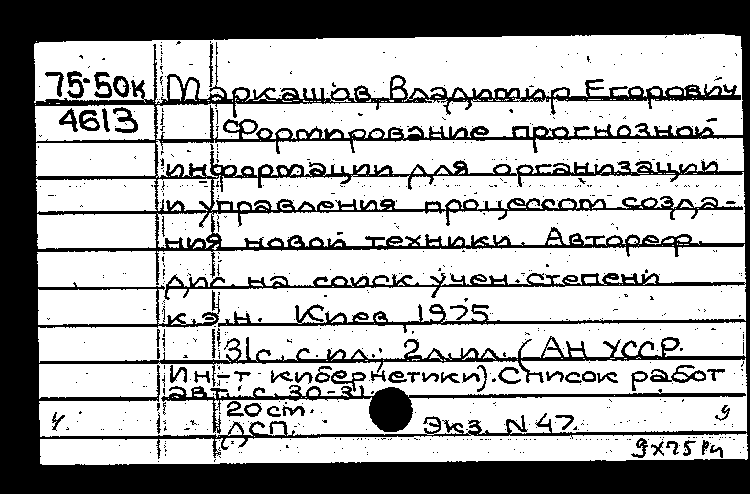 75-50к Маркашов, Владимир Егорович
4613 Формирование прогнозной
информации для организации
и управления процессом созда-
ния новой техники. Автореф.
дис. на соиск. учен. степени
к.э.н. Киев, 1975
31 с. с ил.; 2 л. ил. (АН УССР.
Ин-т кибернетики). Список работ
авт.: с. 30-31.
20 cm.
ДСП. Экз. N 47.
9